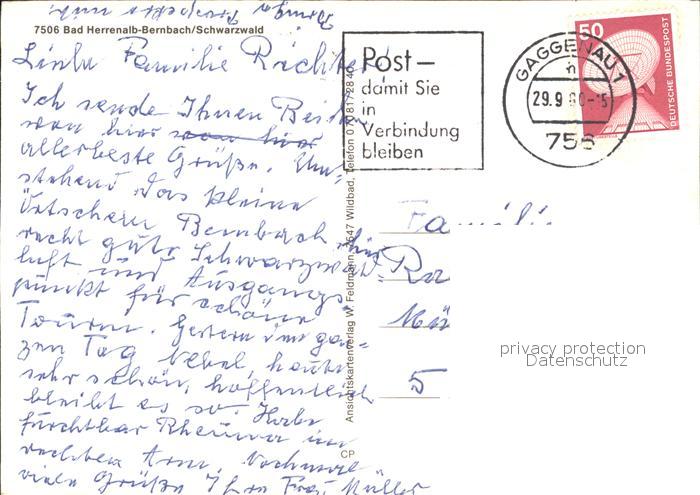 Bringe
Prospekte mit.
7506 Bad Herrenalb-Bernbach/Schwarzwald
Liebe Familie Richter!
Ich sende Ihnen Beiden
von hier von hier
allerbeste Grüße. Um-
stehend das kleine
Örtchen Bernbach, hier
recht gute Schwarzwald-
luft und Ausgangs-
punkt für schöne
Touren. Gestern den gan-
zen Tag Nebel, heute
sehr schön, hoffentlich
bleibt es so. Habe
furchtbar Rheuma im
rechten Arm. Nochmal
viele Grüße Ihre Frau Müller
Ansichtskartenverlag W. Feldmann, 7547 Wildbad, Telefon
CP
Post –
damit Sie
in
Verbindung
bleiben
GAGGENAU 1
n
29.9.80-15
756
50
DEUTSCHE BUNDESPOST
Famili
Ra
Mü
5
privacy protection
Datenschutz